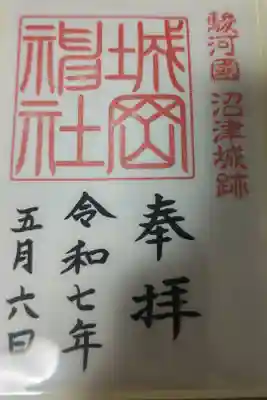 駿河國 沼津城跡
城岡神社
奉拝
令和七年
五月六日